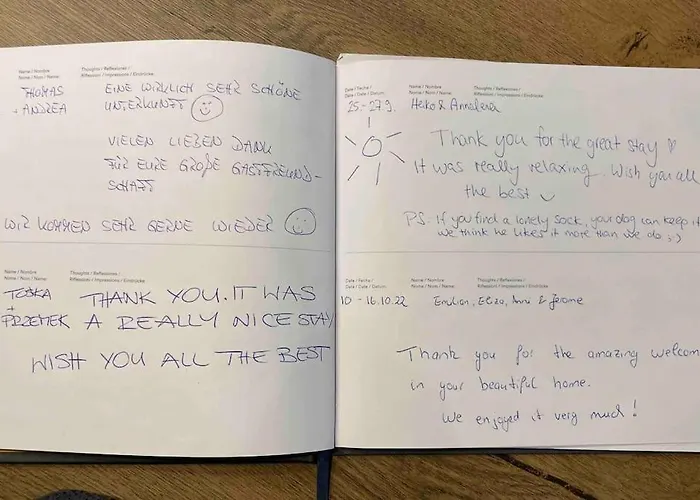 Name / Nombre
Name / Nom / Name:
Thoughts / Reflexiones /
Riflessioni / Impressions / Eindrücke
THOMAS
+ ANDREA
EINE WIRKLICH SEHR SCHÖNE
UNTERKUNFT
VIELEN LIEBEN DANK
FÜR EURE GROßE GASTFREUND-
SCHAFT
WIR KOMMEN SEHR GERNE WIEDER
Name / Nombre
Nome / Nom / Name:
Thoughts / Reflexiones /
Riflessioni / Impressions / Eindrücke
TOŚKA
+
PRZEMEK
THANK YOU. IT WAS
A REALLY NICE STAY
WISH YOU ALL THE BEST
Date / Fecha /
Data / Date / Datum:
Name / Nombre
Nome / Nom / Name:
Thoughts / Reflexiones /
Riflessioni / Impressions / Eindrücke
25.-27.9.
Heiko & Annalena
Thank you for the great stay ♡
It was really relaxing. Wish you all
the best
PS: If you find a lonely sock, your dog can keep it
we think he likes it more than we do ;-)
Date / Fecha /
Data / Date / Datum:
Name / Nombre
Nome / Nom / Name:
Thoughts / Reflexiones /
Riflessioni / Impressions / Eindrücke
10 - 16.10.22
& Jerome
Thank you for the amazing welcom
in your beautiful home.
We enjoyed it very much!